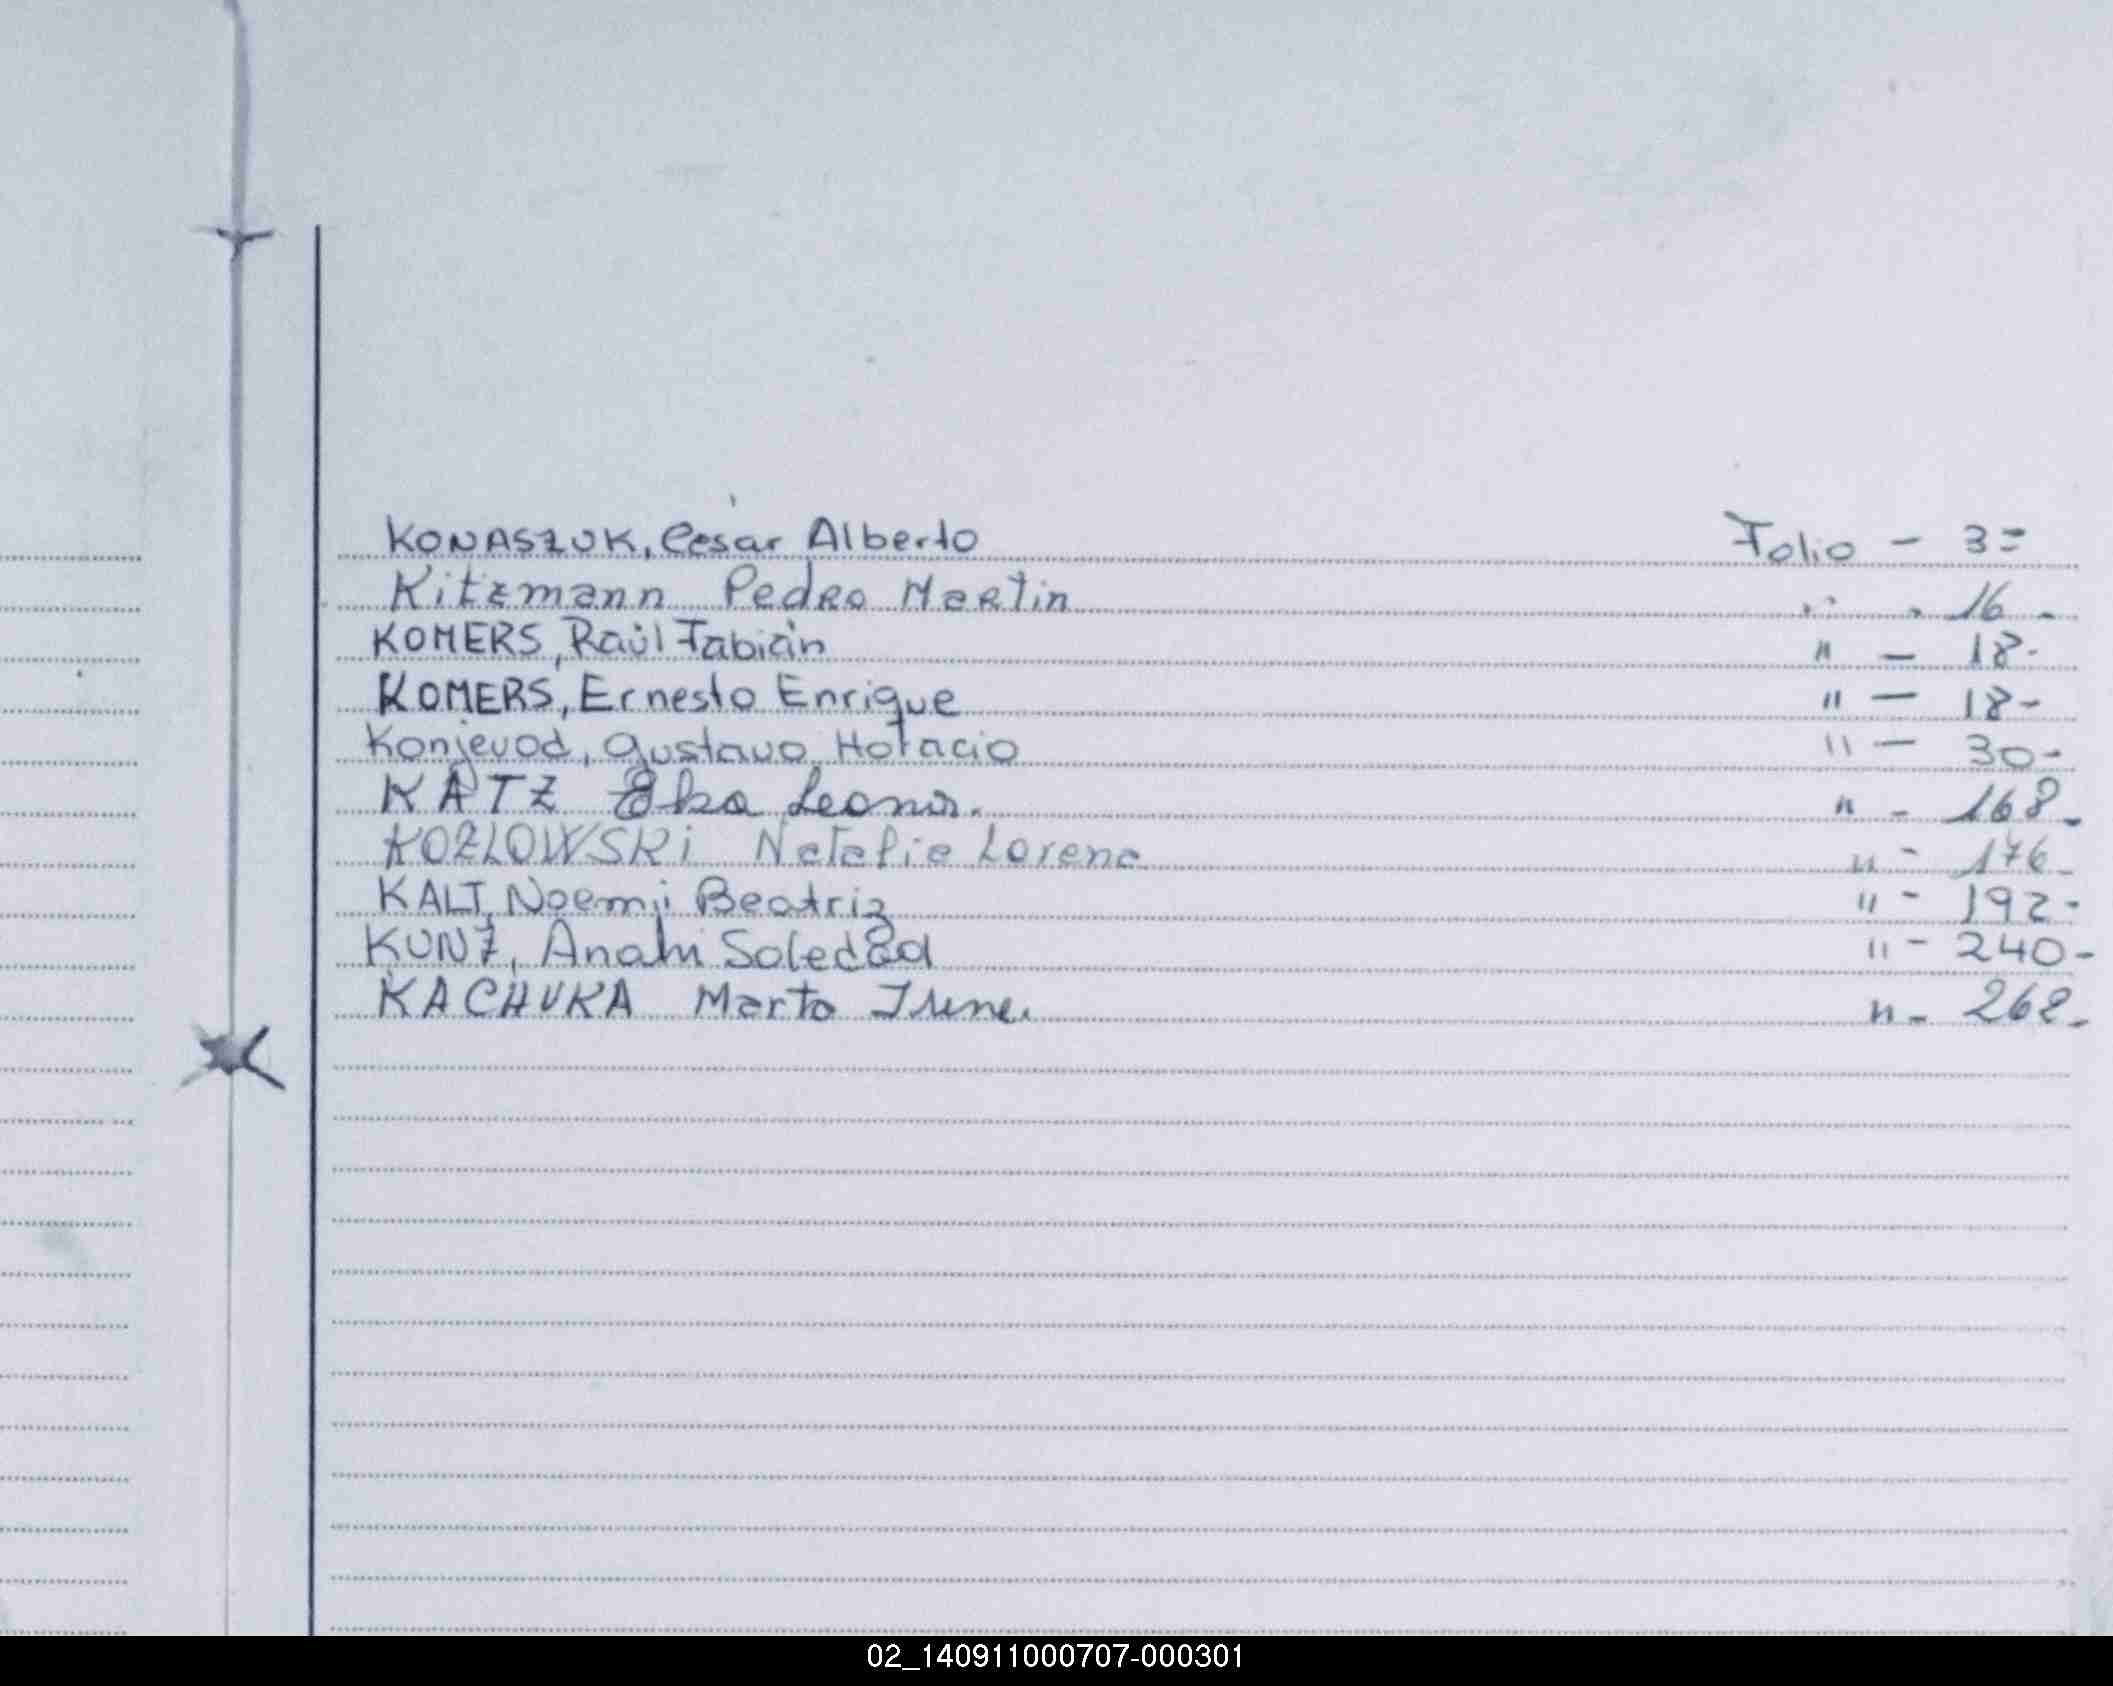 KONASZUK, César Alberto Folio - 3=
Kitzmann Pedro Martin " - 16 -
KOMERS, Raúl Fabián " - 18-
KOMERS, Ernesto Enrique " - 18-
Konjevod, Gustavo Horacio " - 30-
KATZ Leonor. " - 168-
KOZLOWSKi Natalia Lorena " - 176-
KALT, Noemi Beatriz " - 192-
KUNZ, Anahi Soledad " - 240-
KACHUKA Marta Irene. " - 268-
02_140911000707-000301